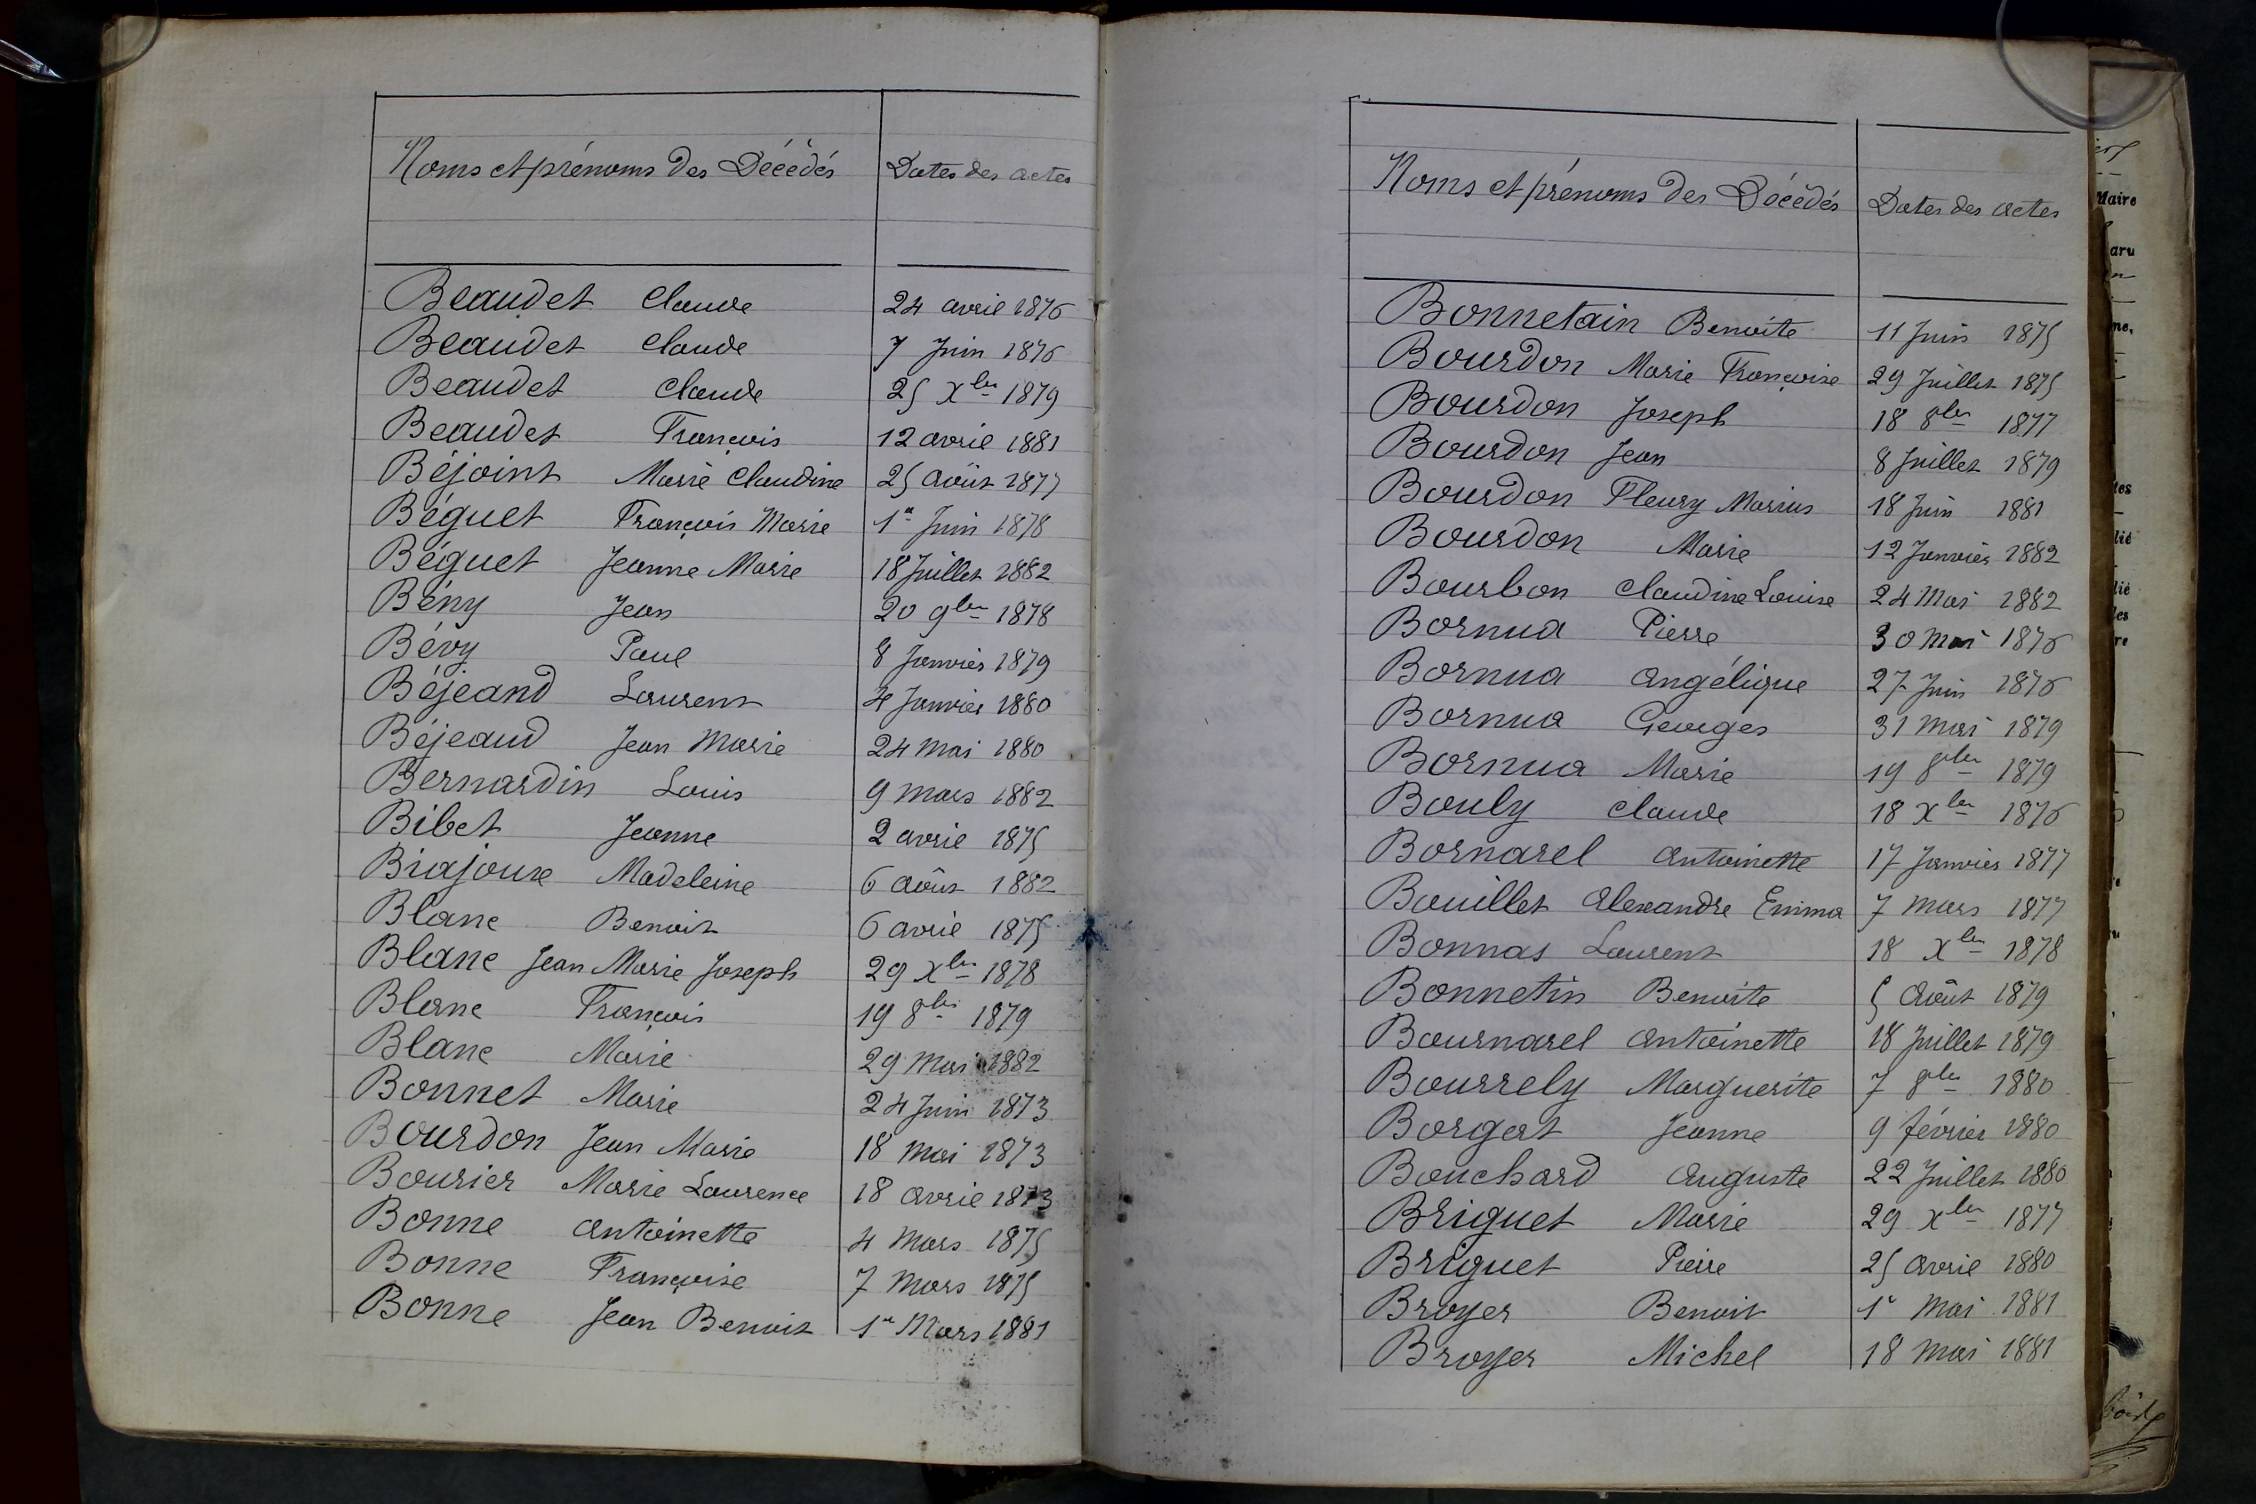 Noms et prénoms des Décédés Dates des actes
Beaudet Claude 24 avril 1876
Beaudet Claude 7 Juin 1876
Beaudet Claude 25 Xbre 1879
Beaudet François 12 avril 1881
Béjoint Marie Claudine 25 août 1877
Béguet François Marie 1er Juin 1878
Béguet Jeanne Marie 18 Juillet 1882
Bény Jean 20 9bre 1878
Bévy Paul 8 Janvier 1879
Béjeand Laurent 4 Janvier 1880
Béjeaud Jean Marie 24 mai 1880
Bernardin Louis 9 mars 1882
Bibet Jeanne 2 avril 1875
Biajoux Madeleine 6 août 1882
Blanc Benoit 6 avril 1875
Blanc Jean Marie Joseph 29 Xbre 1878
Blanc François 19 8bre 1879
Blanc Marie 29 mai 1882
Bonnet Marie 24 Juin 1873
Bourdon Jean Marie 18 mai 1873
Bourier Marie Laurence 18 avril 1873
Bonne Antoinette 4 Mars 1875
Bonne Françoise 7 Mars 1875
Bonne Jean Benoit 1er Mars 1881
Noms et prénoms des Décédés Dates des actes
Bonnetain Benoite 11 Juin 1875
Bourdon Marie Françoise 29 Juillet 1875
Bourdon Joseph 18 8bre 1877
Bourdon Jean 8 Juillet 1879
Bourdon Fleury Marius 18 Juin 1881
Bourdon Marie 12 Janvier 1882
Bourbon Claudine Louise 24 Mai 1882
Bornua Pierre 30 mai 1876
Bornua Angélique 27 Juin 1876
Bornua Georges 31 mai 1879
Bornua Marie 19 8bre 1879
Bouly Claude 18 Xbre 1876
Bornarel Antoinette 17 Janvier 1877
Bouillet Alexandre Emma 7 mars 1877
Bonnas Laurent 18 Xbre 1878
Bonnetin Benoite 5 Août 1879
Bournarel Antoinette 18 Juillet 1879
Bourrely Marguerite 7 8bre 1880
Borgat Jeanne 9 février 1880
Bouchard Auguste 22 Juillet 1880
Briguet Marie 29 Xbre 1877
Briguet Pierre 25 Avril 1880
Broyer Benoit 1er Mai 1881
Broyer Michel 18 mai 1881
Maire